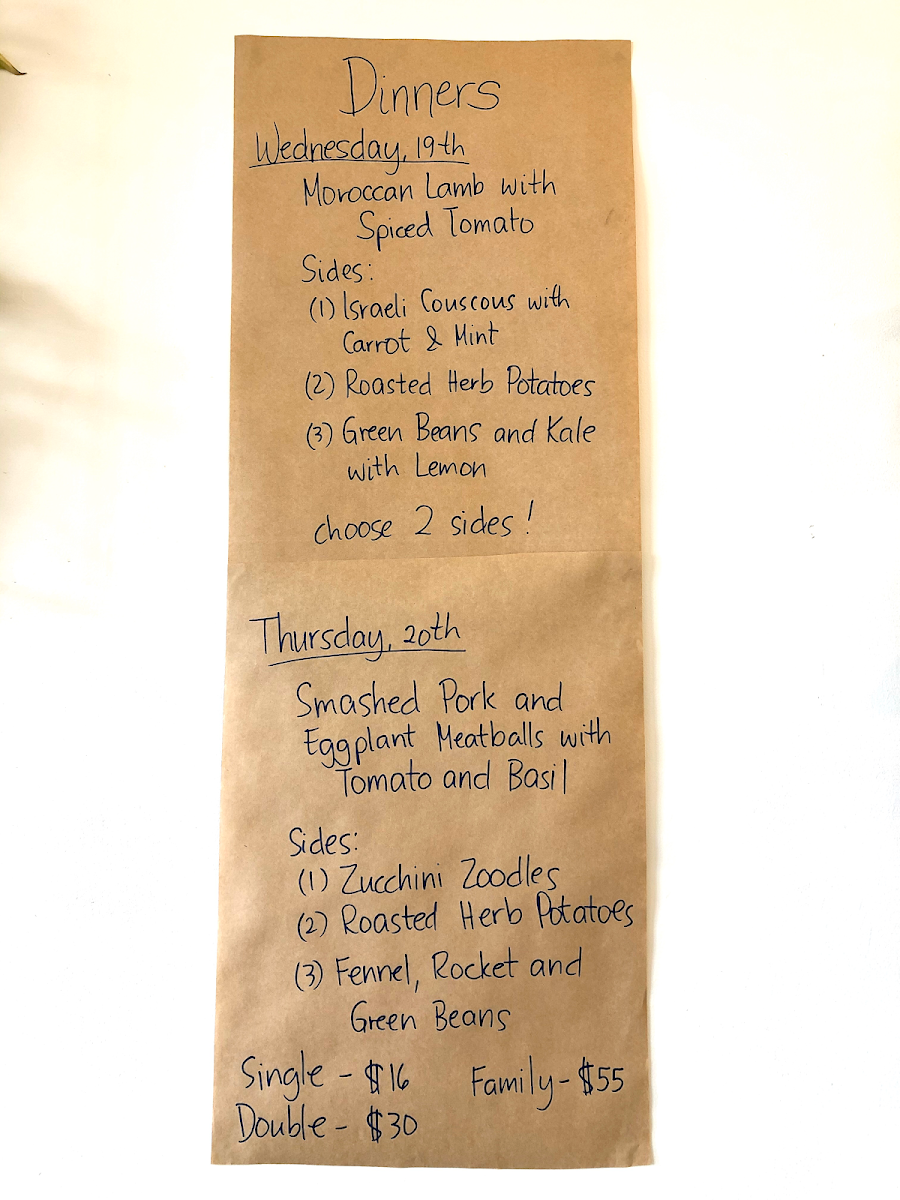 Dinners
Wednesday, 19th
Moroccan Lamb with
Spiced Tomato
Sides:
(1) Israeli Couscous with
Carrot & Mint
(2) Roasted Herb Potatoes
(3) Green Beans and Kale
with Lemon
choose 2 sides!
Thursday, 20th
Smashed Pork and
Eggplant Meatballs with
Tomato and Basil
Sides:
(1) Zucchini Zoodles
(2) Roasted Herb Potatoes
(3) Fennel, Rocket and
Green Beans
Single - $16 Family - $55
Double - $30